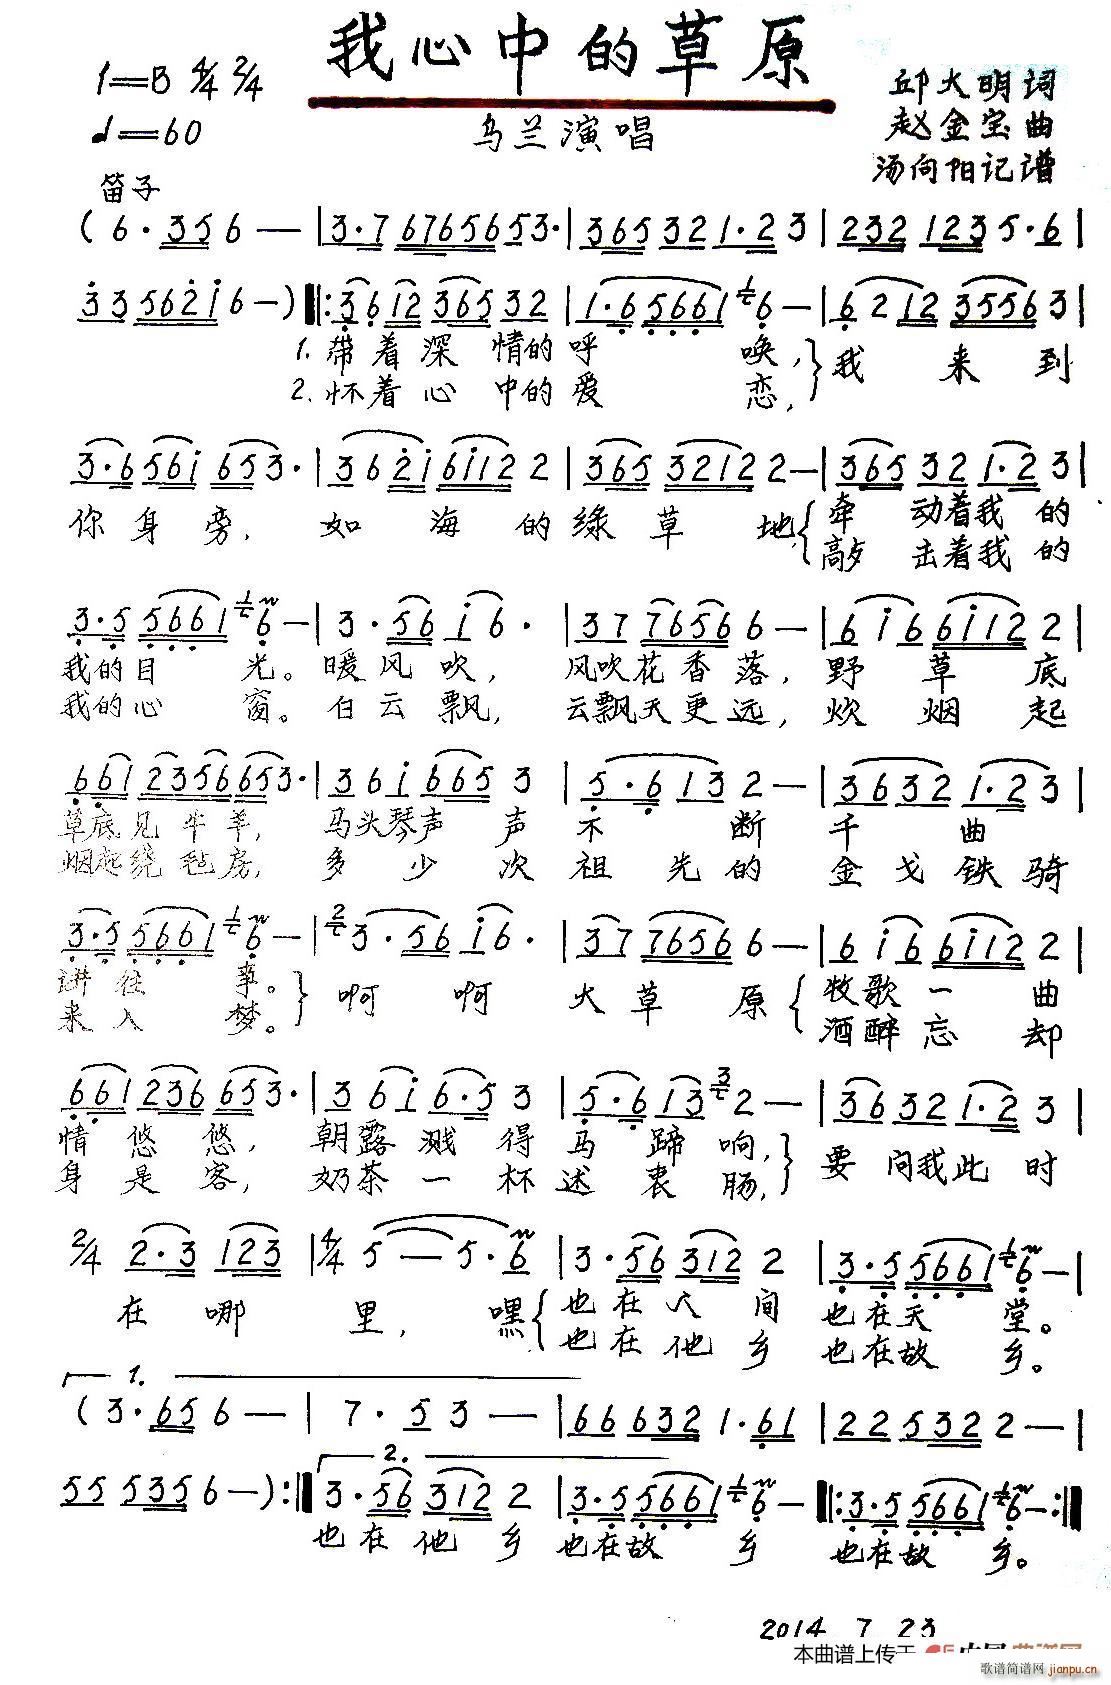 我心中的草原
1=B 4/4 2/4
♩=60
乌兰演唱
邱大明词
赵金宝曲
汤向阳记谱
笛子
(6·356—|3·76765653·|365321·23|232 1235·6|
33562i6—)|:3·612 36532|1·65661 6—|6212 35563|
1.带着深情的呼唤,}我来到
2.怀着心中的爱恋,
3·656i 653·|362i6i122|365 32122—|365 321·23|
你身旁,如海的绿草地,{牵动着我的
敲击着我的
3·5 5661 6—|3·56 i6·|37 76566—|6i6 6i122|
我的目光。暖风吹,风吹花香落,野草底
我的心窗。白云飘,云飘天更远,炊烟起
661 2356653·|36i 6653|5·6132—|3632 1·23|
草底见牛羊,马头琴声声不断千曲
烟起绕毡房,多少次祖先的金戈铁骑
3·5 5661 6—|3·56 i6·|37 76566—|6i6 6i122|
讲往事。}啊啊大草原{牧歌一曲
来入梦。酒醉忘却
661 236 653·|36i 6·53|5·613 2—|3632 1·23|
情悠悠,朝露溅得马蹄响,}要问我此时
身是客,奶茶一杯述衷肠,
2/4 2·3 123|4/4 5—5·6|3·56 3122|3·5 5661 6—|
在哪里,嘿{也在人间也在天堂。
也在他乡也在故乡。
1.
(3·656—|7·53—|66632 1·61|225322—|
2.
55 5356—):|3·56 3122|3·5 5661 6—|:3·5 5661 6—:|
也在他乡也在故乡也在故乡。
2014 7 23
本曲谱上传于
歌谱简谱网 jianpu.cn